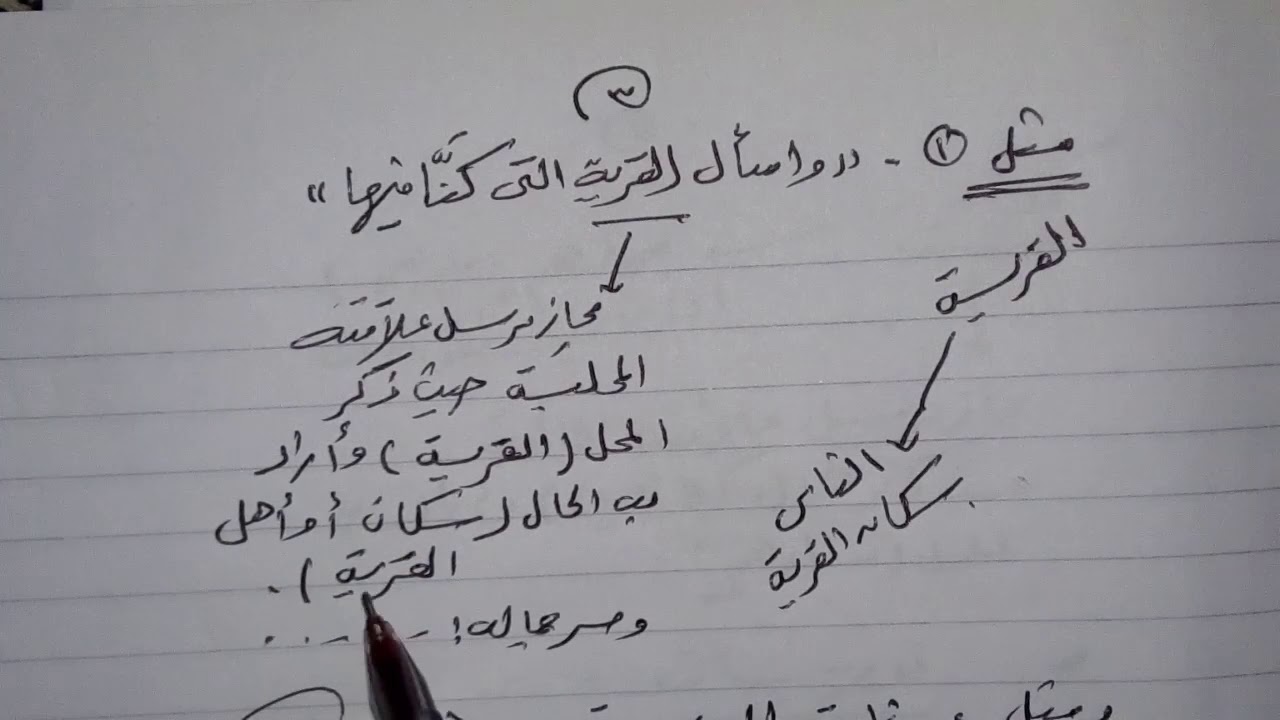 ٣
مثل ٢ - "واسأل القرية التى كنَّا فيها"
القرية
الناس
سكان القرية
مجاز مرسل علاقته
المحلية حيث ذكر
المحل (القرية) وأراد
به الحال (سكان أو أهل
القرية).
وسر جماله:
ومثل